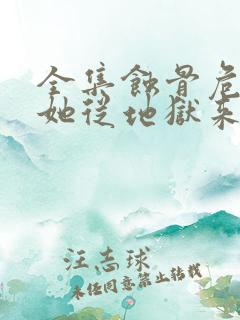 全集蝕骨危
她從地獄來
汪志球
未经同意禁止转载